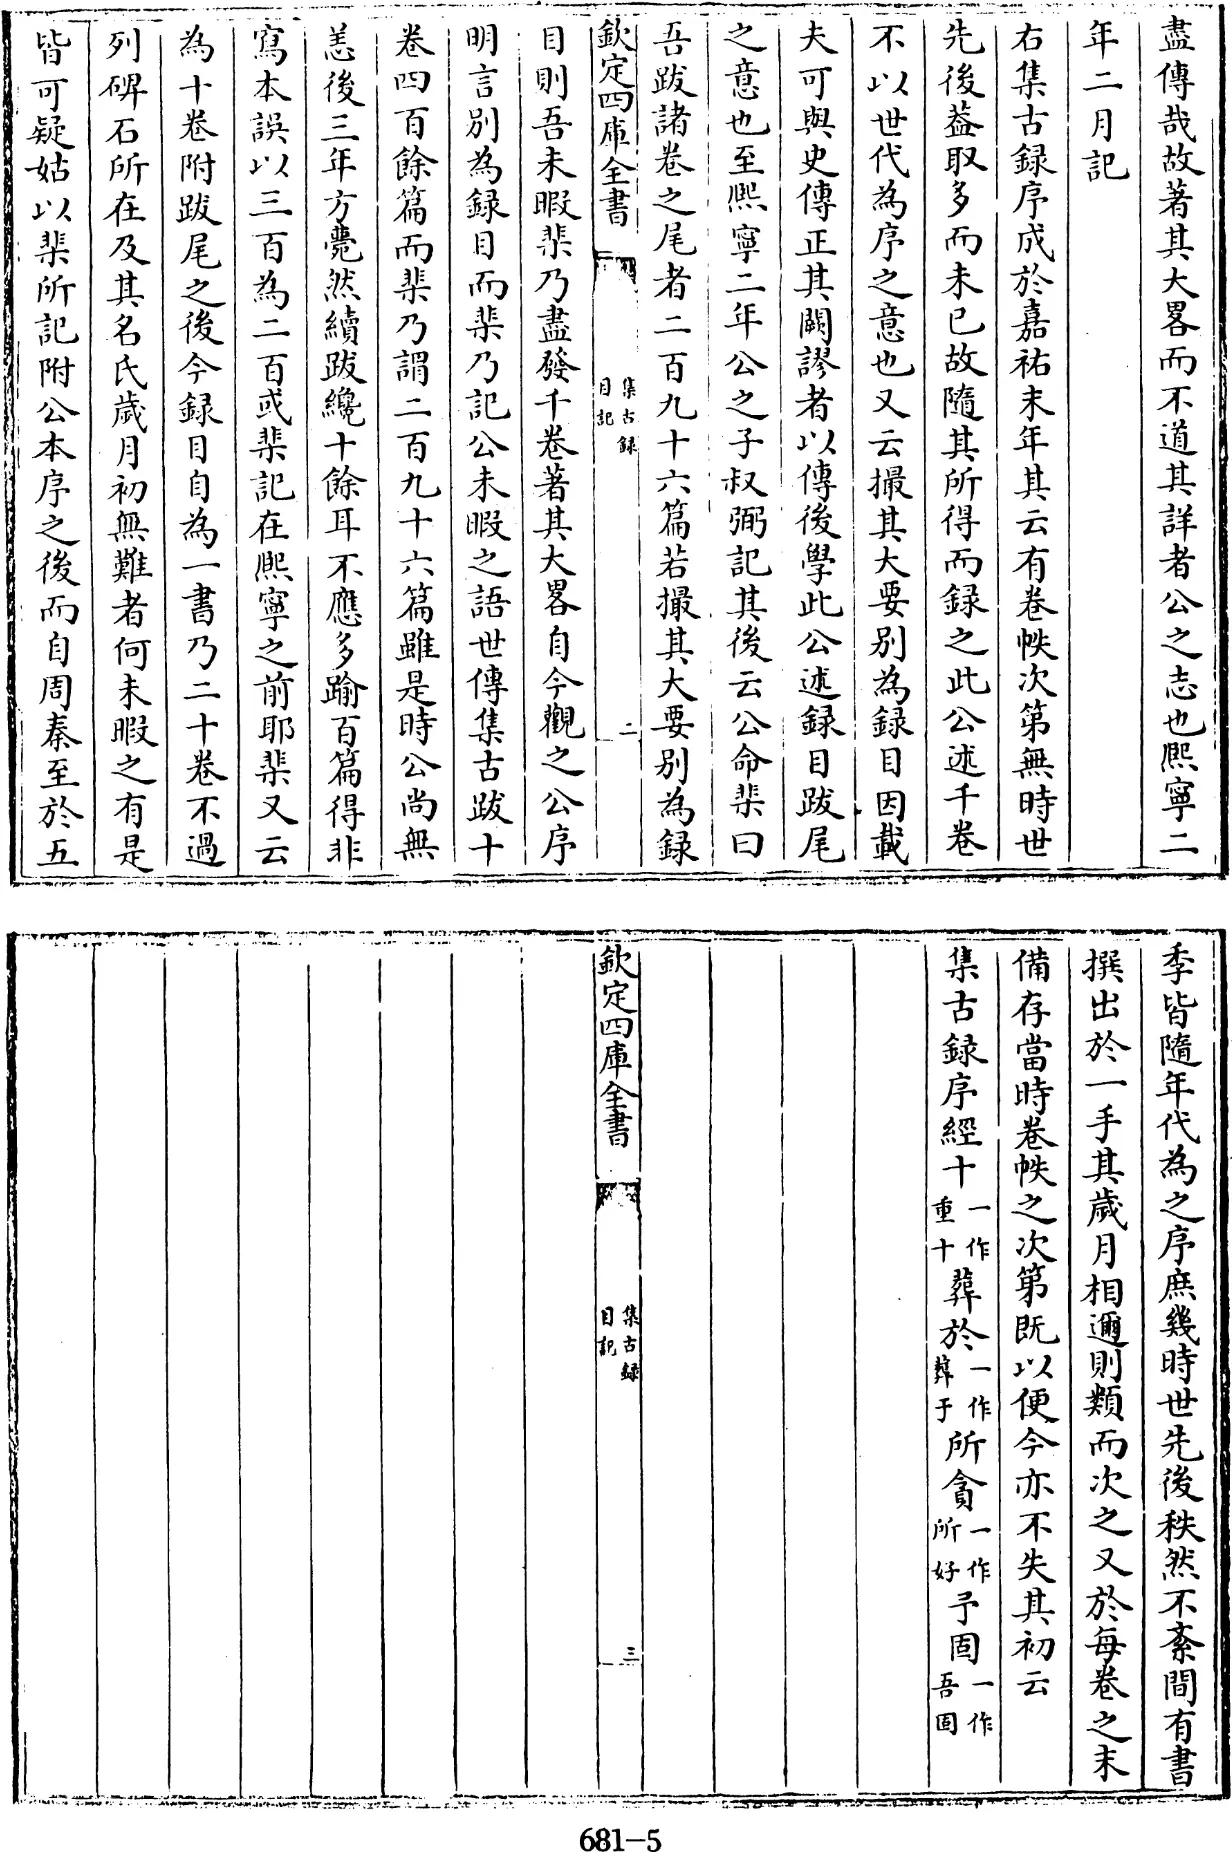 盡傳哉故著其大畧而不道其詳者公之志也熙寧二
年二月記
右集古録序成於嘉祐末年其云有卷帙次第無時世
先後葢取多而未已故隨其所得而録之此公述千卷
不以世代為序之意也又云撮其大要別為録目因載
夫可與史傳正其闕謬者以傳後學此公述録目跋尾
之意也至熙寧二年公之子叔弼記其後云公命棐曰
吾跋諸卷之尾者二百九十六篇若撮其大要別為録
欽定四庫全書
集古録
目記
二
目則吾未暇棐乃盡發千卷著其大畧自今觀之公序
明言別為録目而棐乃記公未暇之語世傳集古跋十
卷四百餘篇而棐乃謂二百九十六篇雖是時公尚無
恙後三年方薨然續跋纔十餘耳不應多踰百篇得非
寫本誤以三百為二百或棐記在熙寧之前耶棐又云
為十卷附跋尾之後今録目自為一書乃二十卷不過
列碑石所在及其名氏歲月初無難者何未暇之有是
皆可疑姑以棐所記附公本序之後而自周秦至於五
季皆隨年代為之序庶幾時世先後秩然不紊間有書
撰出於一手其歲月相邇則類而次之又於每卷之末
備存當時卷帙之次第既以便今亦不失其初云
集古録序經十一作重十葬於一作葬于所貪一作所好予固一作吾固
欽定四庫全書
集古録
目記
三
681-5